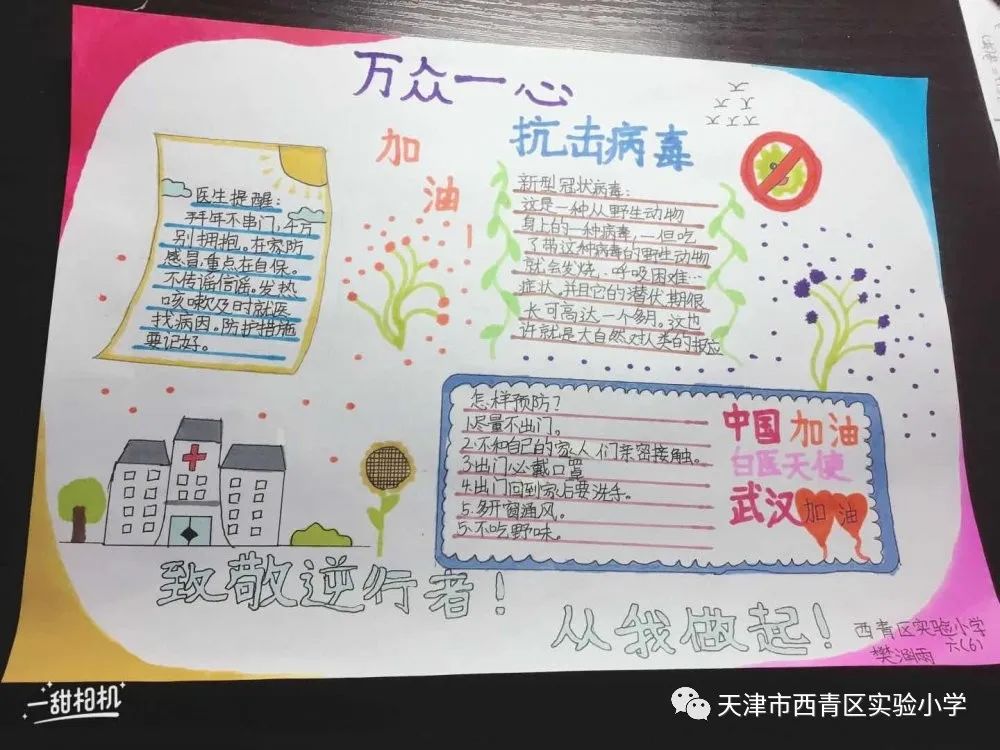 万众一心
加油！
抗击病毒
医生提醒：
拜年不串门，千万
别拥抱。在家防
感冒，重点在自保。
不传谣信谣。发热
咳嗽及时就医
找病因。防护措施
要记好。
新型冠状病毒：
这是一种从野生动物
身上的一种病毒，一但吃
了带这种病毒的野生动物
就会发烧、呼吸困难…
症状，并且它的潜伏期很
长可高达一个多月。这也
许就是大自然对人类的报应
怎样预防？
1.尽量不出门。
2.不和自己的家人们亲密接触。
3.出门必戴口罩
4.出门回到家后要洗手。
5.多开窗通风。
5.不吃野味。
中国加油
白医天使
武汉加油
致敬逆行者！
从我做起！
西青区实验小学
六(6)
樊 雨
一甜相机
天津市西青区实验小学